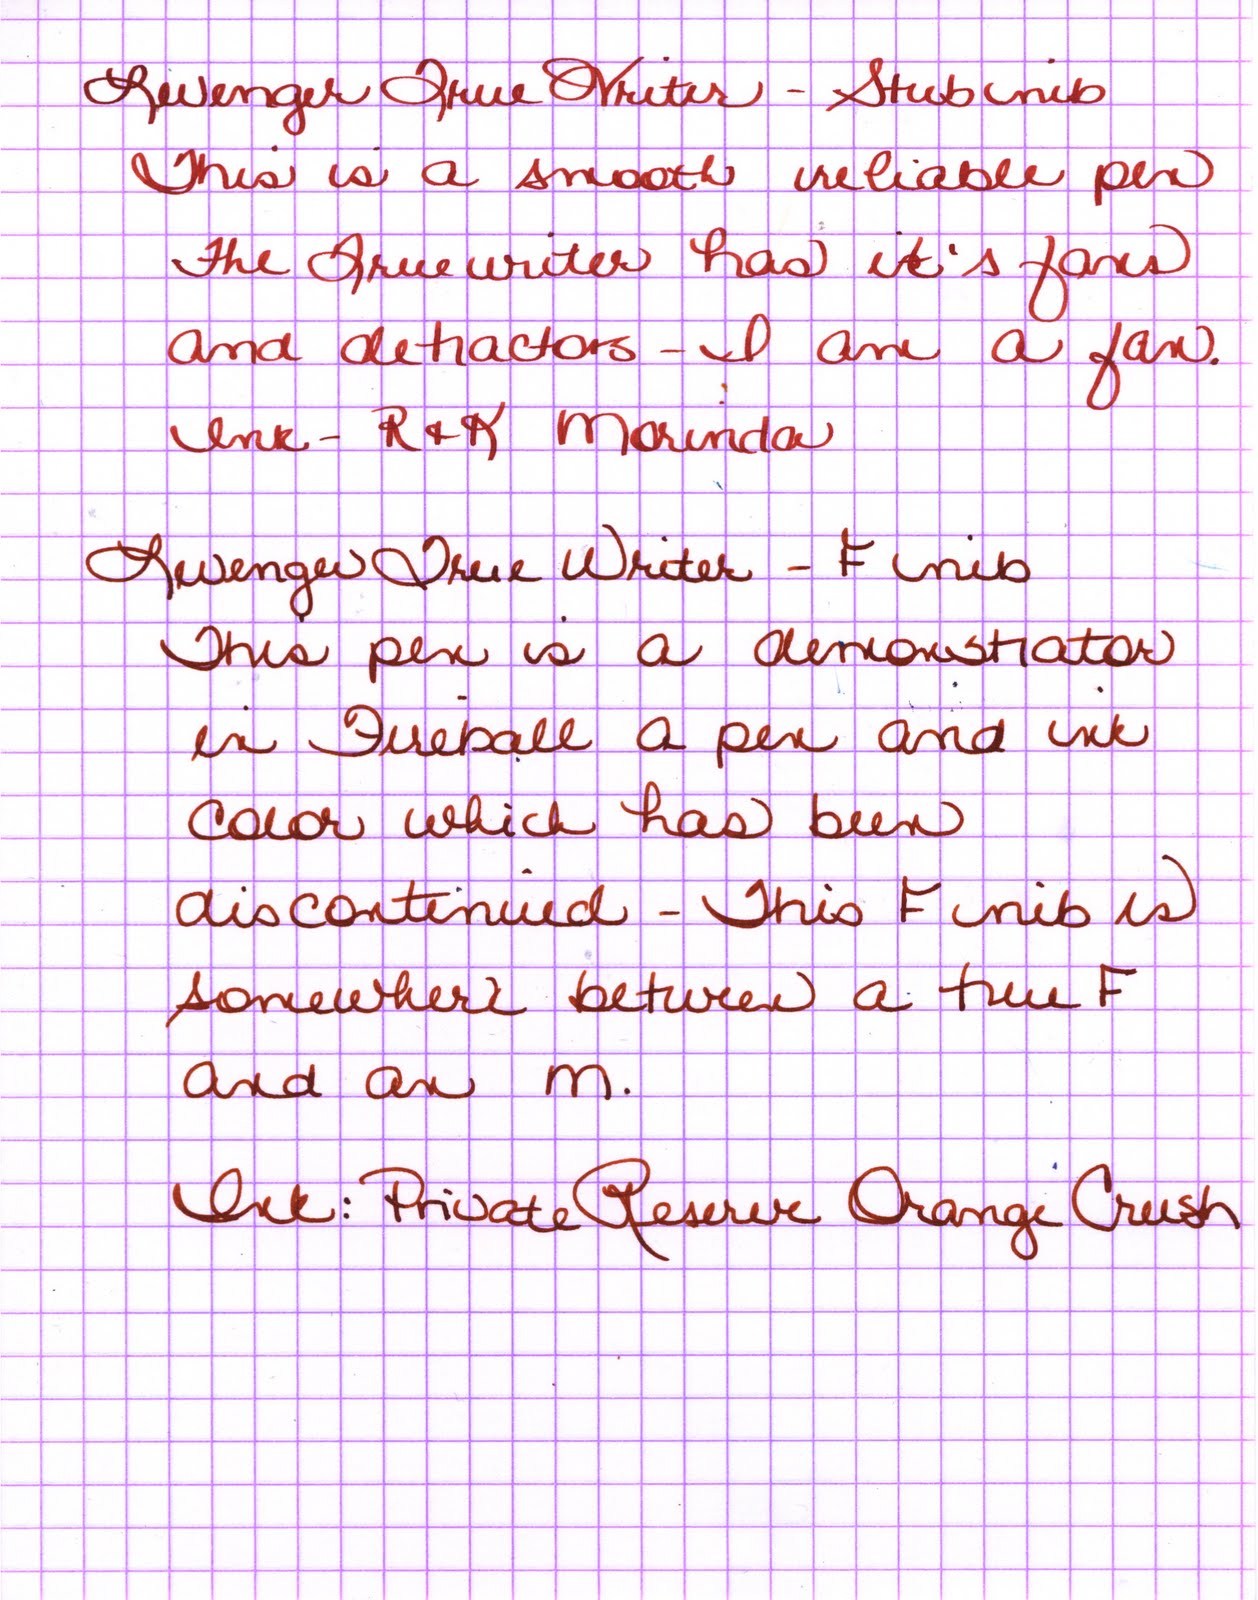 Levenger True Writer - Stub nib
This is a smooth reliable pen
The Truewriter has it's fans
and detractors - I am a fan.
Ink - R+K Morinda
Levenger True Writer - F nib
This pen is a demonstrator
in Fireball a pen and ink
color which has been
discontinued - This F nib is
somewhere between a true F
and an M.
Ink: Private Reserve Orange Crush